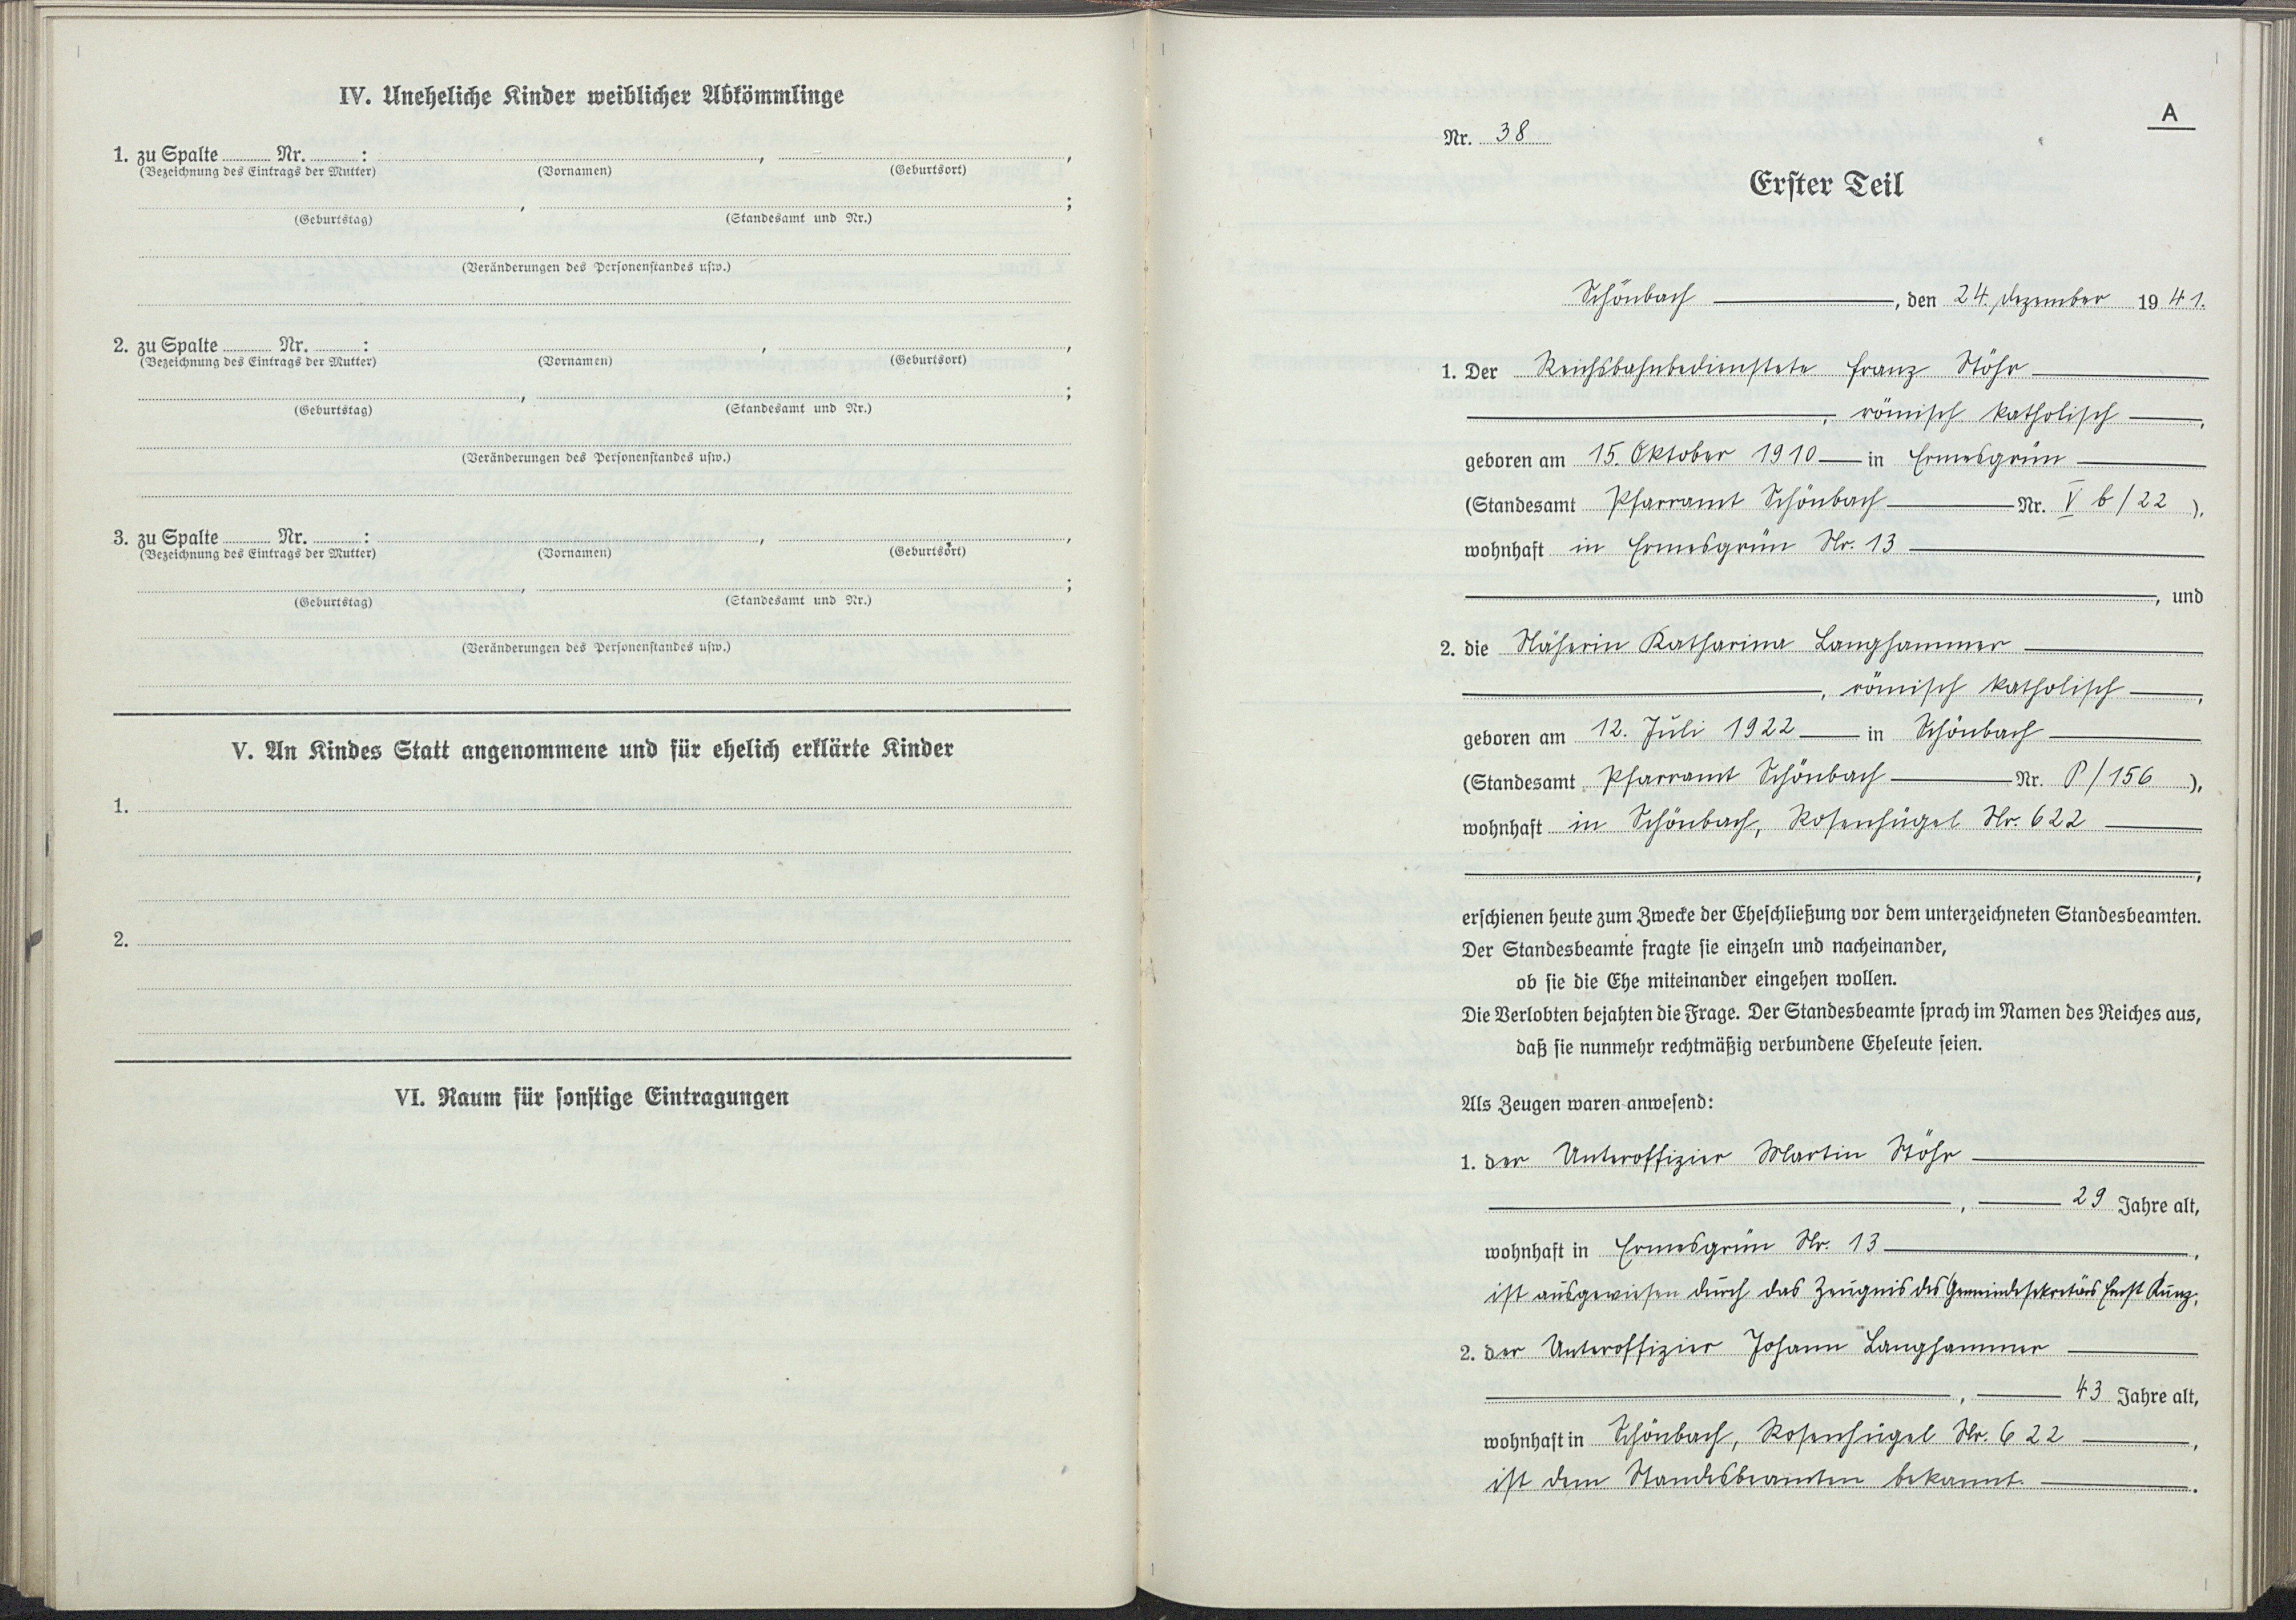 IV. Uneheliche Kinder weiblicher Abkömmlinge
1. zu Spalte ........ Nr. ........ : ........, ........,
(Bezeichnung des Eintrags der Mutter) (Vornamen) (Geburtsort)
........, ........;
(Geburtstag) (Standesamt und Nr.)
(Veränderungen des Personenstandes usw.)
2. zu Spalte ........ Nr. ........ : ........, ........,
(Bezeichnung des Eintrags der Mutter) (Vornamen) (Geburtsort)
........, ........;
(Geburtstag) (Standesamt und Nr.)
(Veränderungen des Personenstandes usw.)
3. zu Spalte ........ Nr. ........ : ........, ........,
(Bezeichnung des Eintrags der Mutter) (Vornamen) (Geburtsort)
........, ........;
(Geburtstag) (Standesamt und Nr.)
(Veränderungen des Personenstandes usw.)
V. An Kindes Statt angenommene und für ehelich erklärte Kinder
1.
2.
VI. Raum für sonstige Eintragungen
A
Nr. 38
Erster Teil
Schönbach, den 24. Dezember 1941.
1. Der Reichsbahnbedienstete Franz Stöhr
, römisch katholisch,
geboren am 15. Oktober 1910 in Ermesgrün
(Standesamt Pfarramt Schönbach Nr. V b/22),
wohnhaft in Ermesgrün Nr. 13
, und
2. die Näherin Katharina Langhammer
, römisch katholisch,
geboren am 12. Juli 1922 in Schönbach
(Standesamt Pfarramt Schönbach Nr. P/156),
wohnhaft in Schönbach, Rosenhügel Nr. 622
,
erschienen heute zum Zwecke der Eheschließung vor dem unterzeichneten Standesbeamten.
Der Standesbeamte fragte sie einzeln und nacheinander,
ob sie die Ehe miteinander eingehen wollen.
Die Verlobten bejahten die Frage. Der Standesbeamte sprach im Namen des Reiches aus,
daß sie nunmehr rechtmäßig verbundene Eheleute seien.
Als Zeugen waren anwesend:
1. der Unteroffizier Martin Stöhr
, 29 Jahre alt,
wohnhaft in Ermesgrün Nr. 13,
ist ausgewiesen durch das Zeugnis des Gemeindesekretärs Ernst Kunz,
2. der Unteroffizier Johann Langhammer
, 43 Jahre alt,
wohnhaft in Schönbach, Rosenhügel Nr. 622,
ist dem Standesbeamten bekannt.